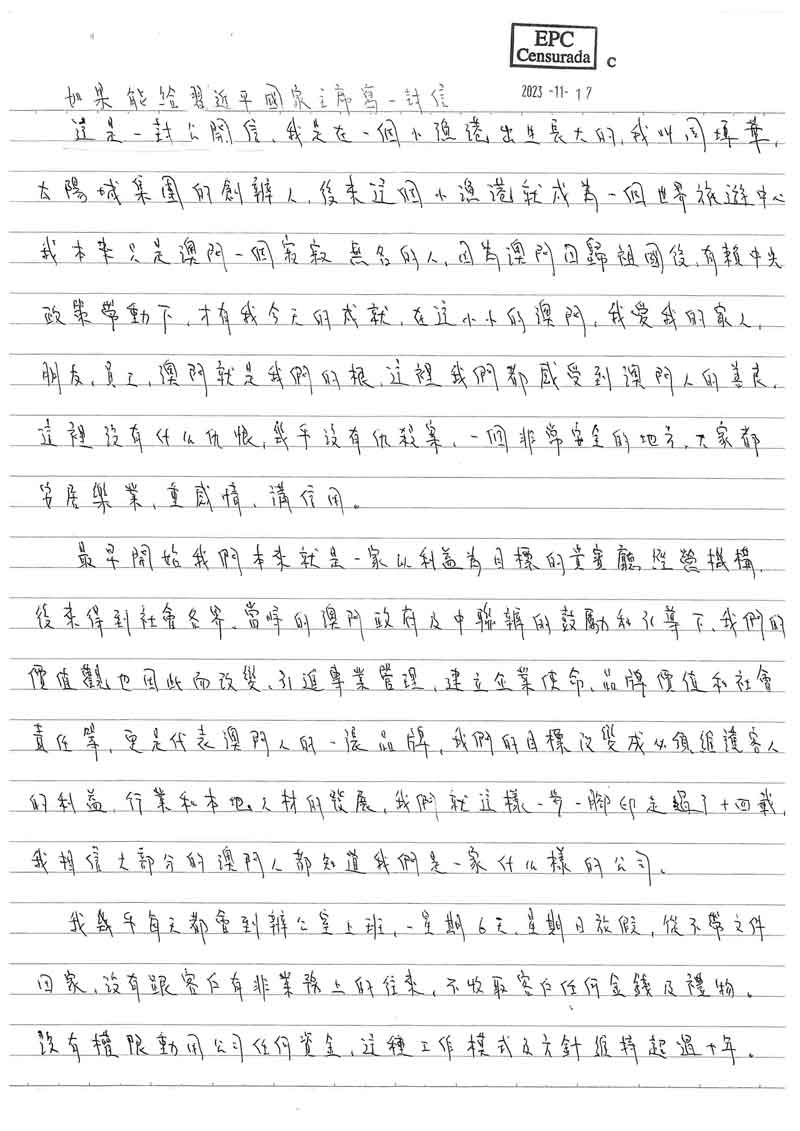 EPC
Censurada
C
2023-11-17
如果能給習近平國家主席寫一封信
這是一封公開信，我是在一個小漁港出生長大的，我叫周焯華，
太陽城集團的創辦人，後來這個小漁港就成為一個世界旅遊中心
我本來只是澳門一個寂寂無名的人，因為澳門回歸祖國後，有賴中央
政策帶動下，才有我今天的成就，在這小小的澳門，我愛我的家人，
朋友，員工，澳門就是我們的根，這裡我們都感受到澳門人的善良，
這裡沒有什么仇恨，幾乎沒有仇殺案，一個非常安全的地方，大家都
安居樂業，重感情，講信用。
最早開始我們本來就是一家以利益為目標的貴賓廳經營機構，
後來得到社會各界，當時的澳門政府及中聯辦的鼓勵和引導下，我們的
價值觀也因此而改變，引進專業管理，建立企業使命，品牌價值和社會
責任等，更是代表澳門人的一張品牌，我們的目標改變成必須維護客人
的利益，行業和本地人材的發展，我們就這樣一步一腳印走過了十四載，
我相信大部分的澳門人都知道我們是一家什么樣的公司。
我幾乎每天都會到辦公室上班，一星期6天，星期日放假，從不帶文件
回家，沒有跟客戶有非業務上的往來，不收取客戶任何金錢及禮物。
沒有權限動用公司任何資金，這種工作模式及方針維持起過十年。